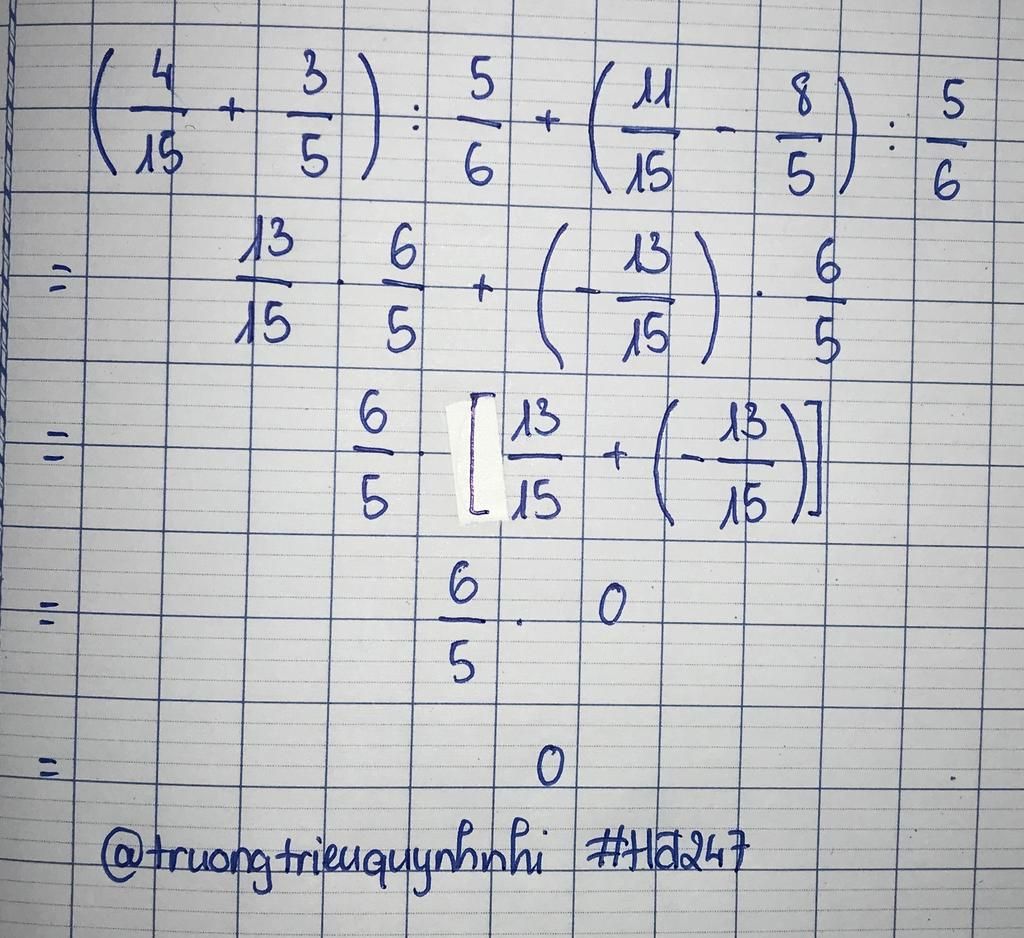 (4/15 + 3/5) : 5/6 + (11/15 - 8/5) : 5/6
= 13/15 . 6/5 + (- 13/15) . 6/5
= 6/5 . [13/15 + (- 13/15)]
= 6/5 . 0
= 0
@truongtrieuquynhnhi #Hđ247